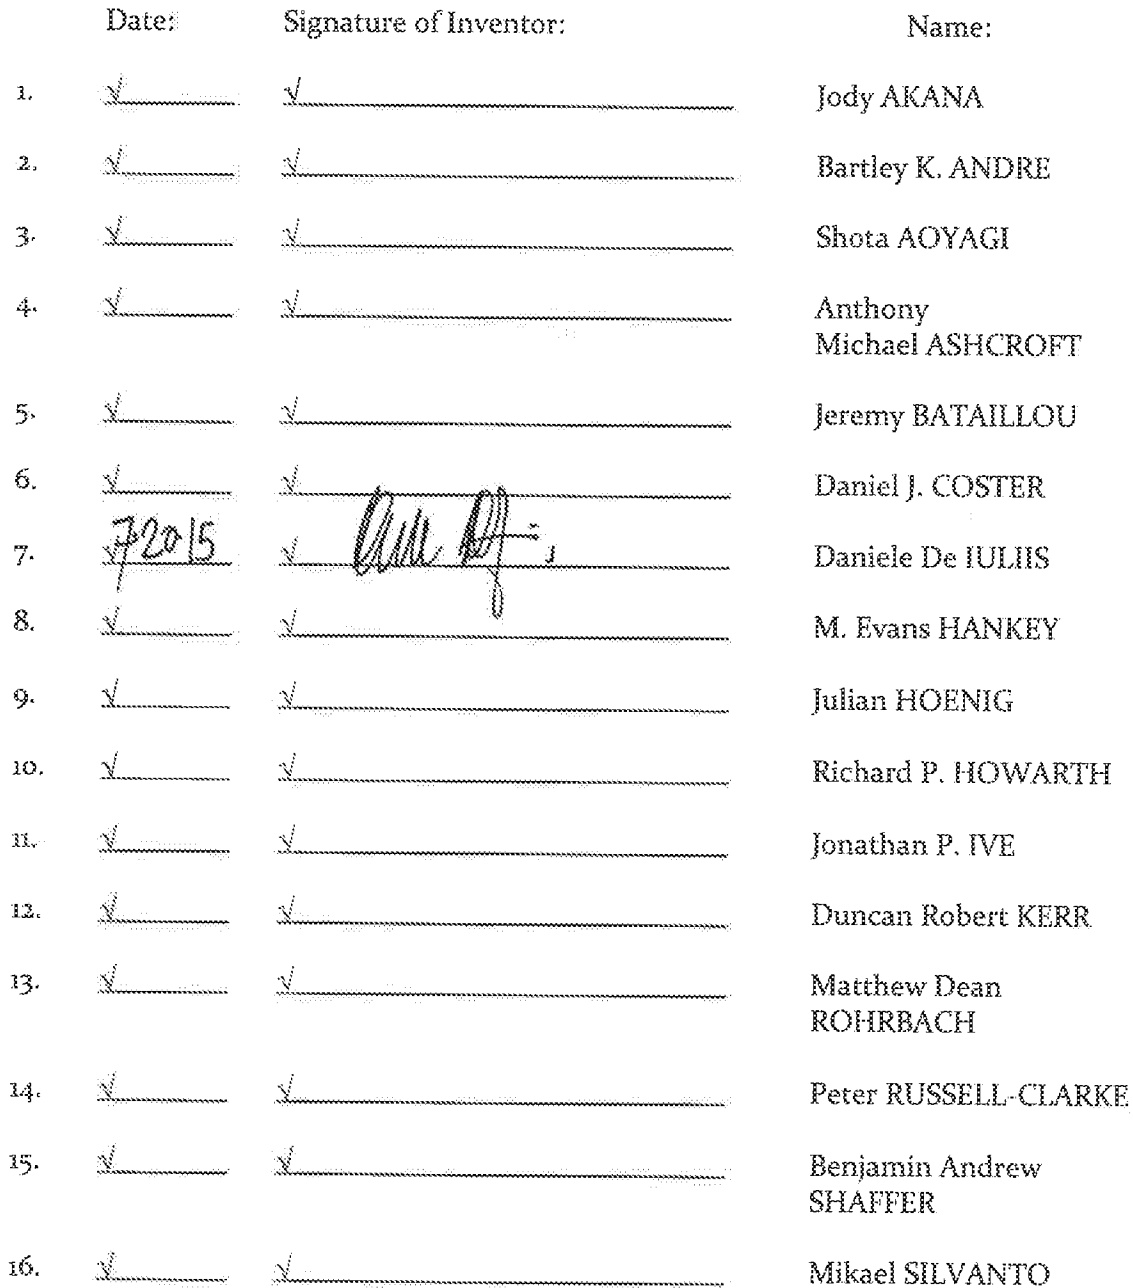 Date: Signature of Inventor: Name:
1. √ √ Jody AKANA
2. √ √ Bartley K. ANDRE
3. √ √ Shota AOYAGI
4. √ √ Anthony
Michael ASHCROFT
5. √ √ Jeremy BATAILLOU
6. √ √ Daniel J. COSTER
7. √ 7 20 15 √ Daniele De IULIIS
8. √ √ M. Evans HANKEY
9. √ √ Julian HOENIG
10. √ √ Richard P. HOWARTH
11. √ √ Jonathan P. IVE
12. √ √ Duncan Robert KERR
13. √ √ Matthew Dean
ROHRBACH
14. √ √ Peter RUSSELL-CLARKE
15. √ √ Benjamin Andrew
SHAFFER
16. √ √ Mikael SILVANTO